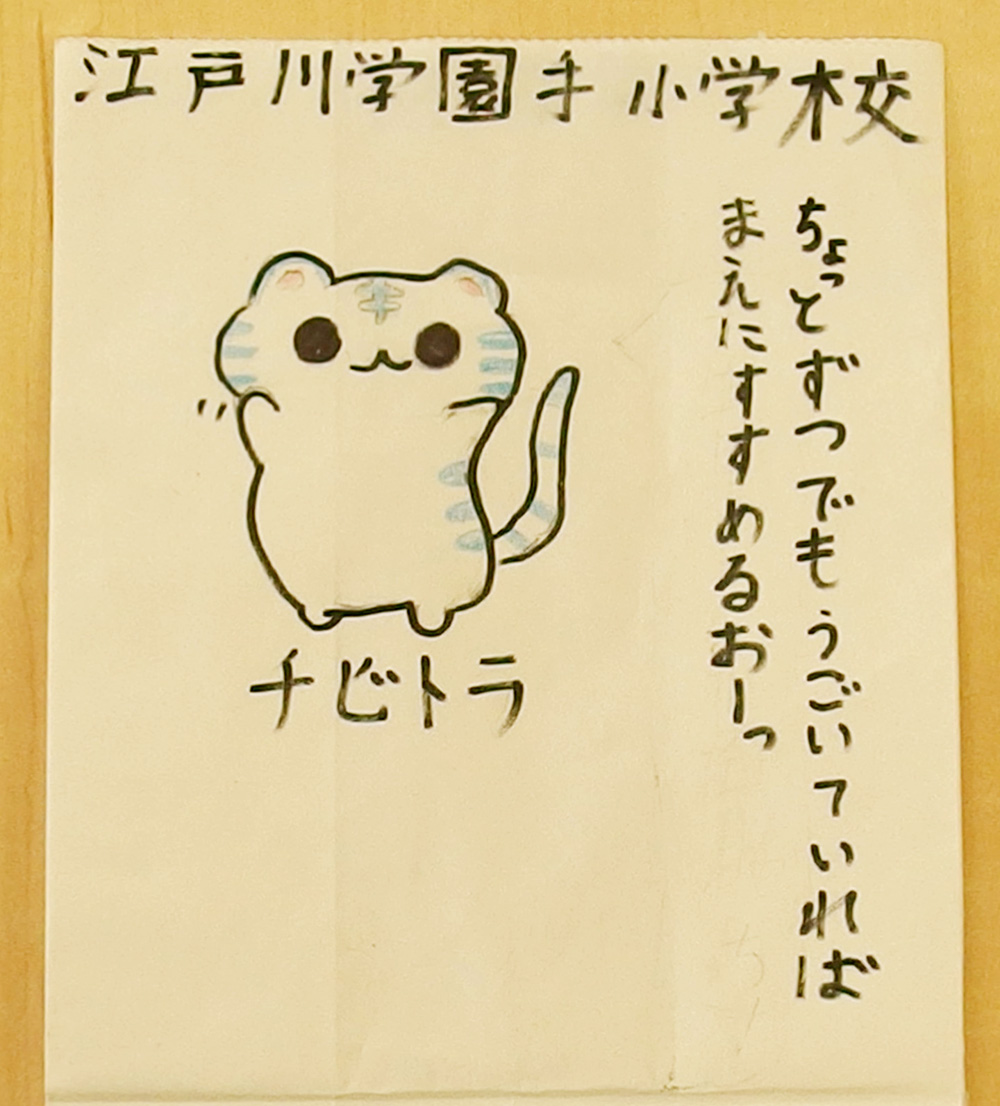 江戸川学園手小学校
ちょっとずつでもうごいていれば
まえにすすめるおーっ
チビトラ